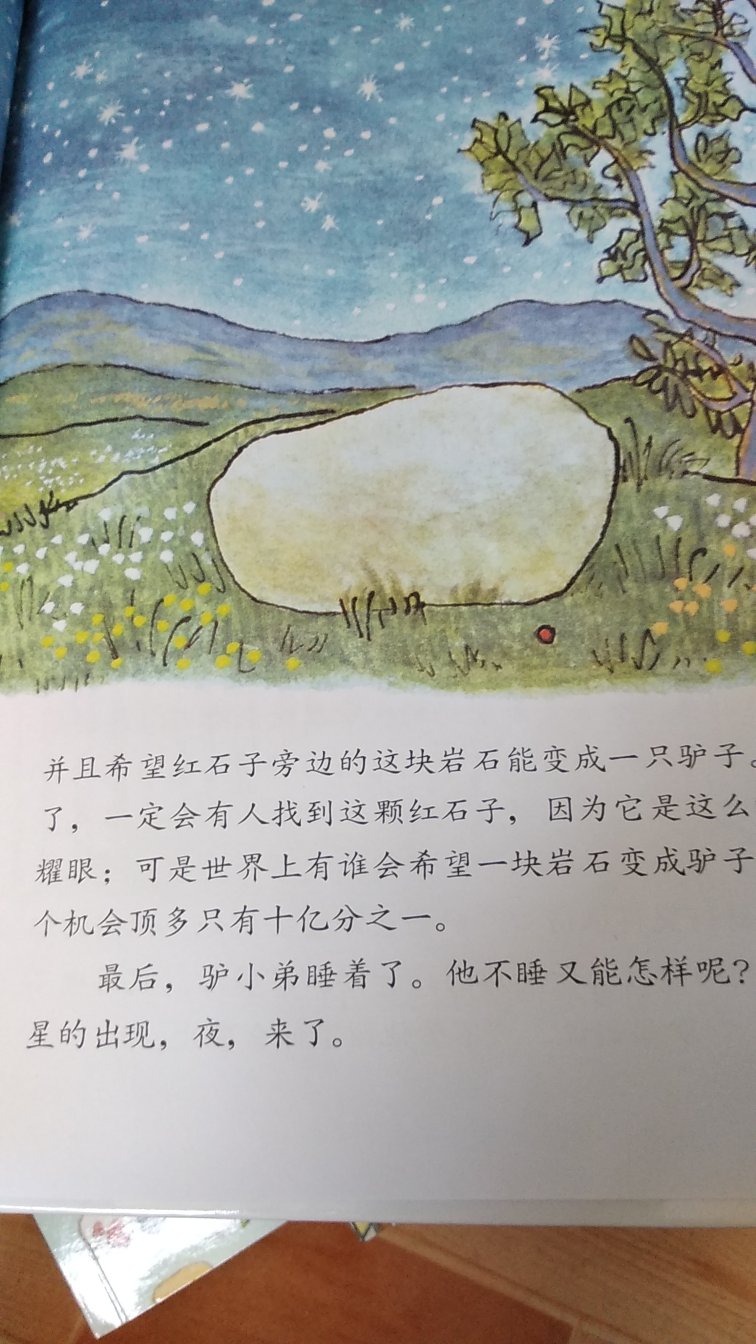 并且希望红石子旁边的这块岩石能变成一只驴子。
了，一定会有人找到这颗红石子，因为它是这么
耀眼；可是世界上有谁会希望一块岩石变成驴子
个机会顶多只有十亿分之一。
最后，驴小弟睡着了。他不睡又能怎样呢？
星的出现，夜，来了。